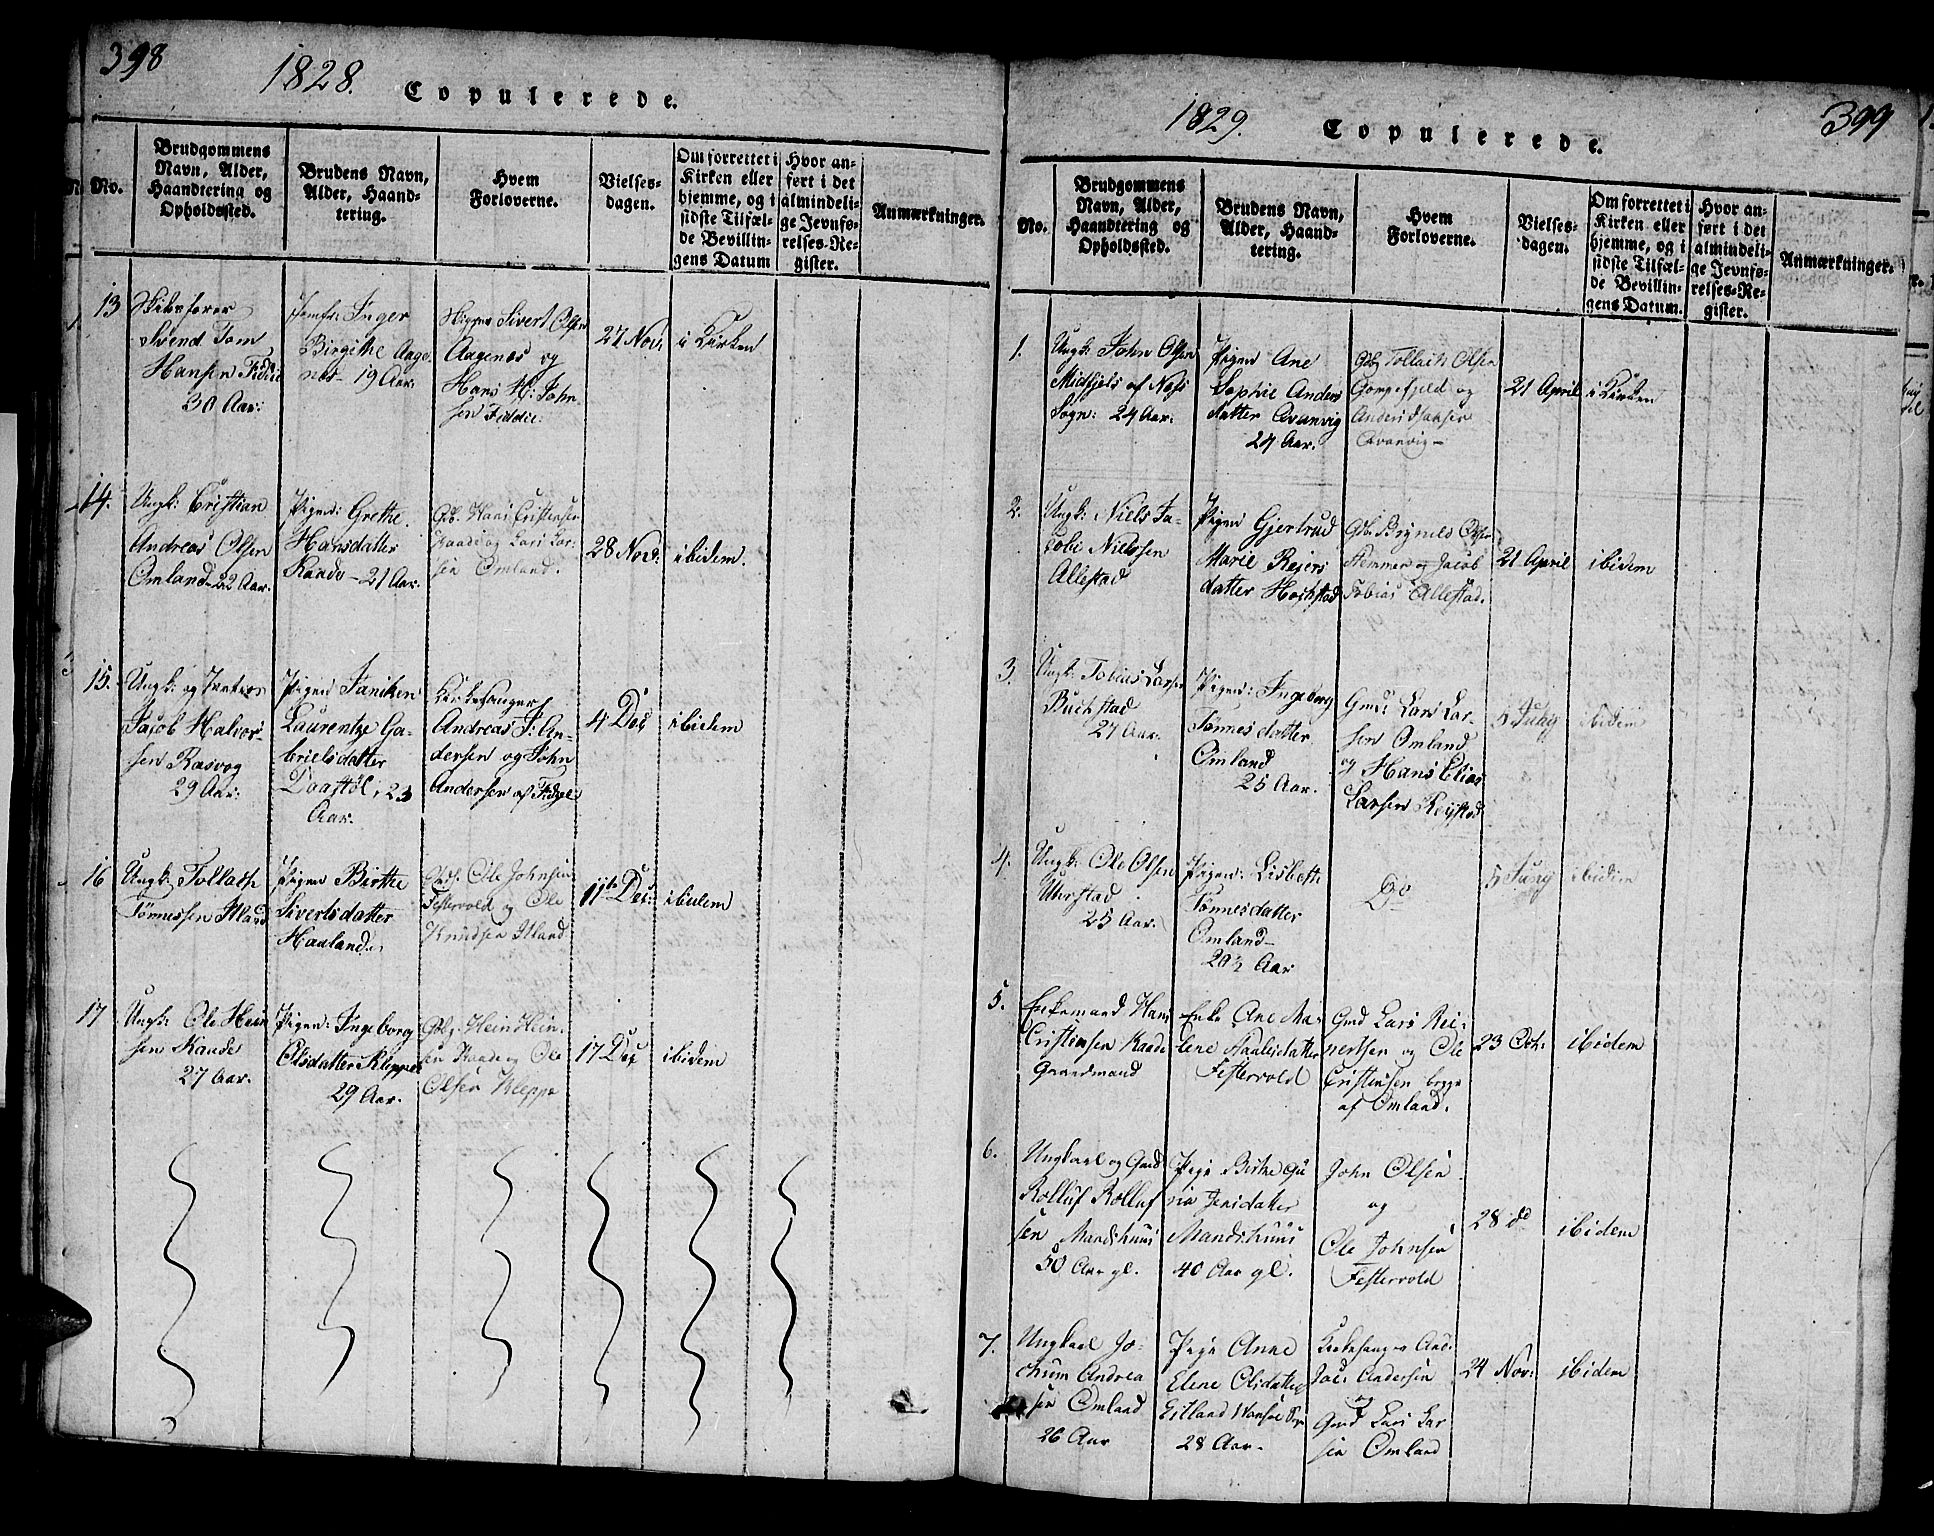 398
1828.
Copulerede.
No.
Brudgommens
Navn, Alder,
Haandtering og
Opholdssted.
Brudens Navn,
Alder, Haand-
tering.
Hvem
Forloverne.
Vielses-
dagen.
Om forrettet i
Kirken eller
hjemme, og i
sidste Tilfæl-
de Bevillin-
gens Datum
Hvor an-
ført i det
almindeli-
ge Jevnfø-
relses-Re-
gister.
Anmærkninger.
13
Svend Tom
Hansen
30 Aar.
Jomfr: Inger
Birgithe Aage
næs - 19 Aar.
Sivert Olsen
Aagenæs og
Hans H: John-
sen Fiddie.
27 Nov.
i Kirken
14.
Ungk: Cristian
Andreas Olsen
Omland - 22 Aar.
Pigen: Grethe
Hansdatter
Kaade - 21 Aar.
Gdb. Hans Cristensen
Kaade og Lars Lar-
sen Omland.
28 Nov.
ibidem.
15.
Ungk: og
Jacob Halvor-
sen Rasvog
29 Aar.
Pigen Taniken
Laurentze Ga-
brielsdatter
Daastöl, 23
Aar.
Kirkesanger
Andreas J: An-
dersen og John
Andersen af
4 Dec
ibidem
16
Ungk. Tollach
Tønnessen Itland
Pigen Birthe
Sivertsdatter
Haaland.
Gdb. Ole Johnsen
Festervold og Ole
Knudsen Itland
11te Dec:
ibidem
17
Ungk. Ole Hein
sen Kaade
27 Aar.
Pigen: Ingeborg
Olsdatter Kleppe
29 Aar.
Gdb. Hein Hein-
sen Kaade og Ole
Olsen Kleppe
17 Dec
ibidem
1829.
Copulerede.
399
No.
Brudgommens
Navn, Alder,
Haandtering og
Opholdssted.
Brudens Navn,
Alder, Haand-
tering.
Hvem
Forloverne.
Vielses-
dagen.
Om forrettet i
Kirken eller
hjemme, og i
sidste Tilfæl-
de Bevillin-
gens Datum.
Hvor an-
ført i det
almindeli-
ge Jevnfø-
relses-Re-
gister.
Anmærkninger.
1.
Ungk: John Olsen
Midfjels af Næs
Sogn: 24 Aar.
Pigen Ane
Sophie Anders
datter Avanvig
24 Aar.
Gdb Tollach Olsen
Gorgefjeld og
Anders Hansen
Avanvig -
21 April
i Kirken
2.
Ungk: Niels Ja-
cobi Nielssen
Allestad
Pigen Gjertrud
Marie Reiers
datter
Gdb. Brynild Olsen
Stemmen og Jacob
Tobias Allestad.
21 April
ibidem
3.
Ungk: Tobias Larsen
Buchstad
27 Aar.
Pigen: Ingeborg
Tønnesdatter
Omland
25 Aar.
Gmd: Lars Lar-
sen Omland
og Hans Elias
Larsen
5 July
ibidem
4.
Ungk: Ole Olsen
25 Aar.
Pigen: Lisbeth
Tønnesdatter
Omland -
20½ Aar
Do
5 July
ibidem
5.
Enkemand Hans
Cristensen Kaade
Gaardmand
Enke Ane Ma-
lene Aanlisdatter
Festervold
Gmd Lars Rei-
nertsen og Ole
Cristensen begge
af Omland.
23 Oct.
ibidem
6.
Ungkarl og Gmd
Rolluf Rolluf
sen Mandshuus
50 Aar gl.
Pige Birthe Gu
ria Jensdatter
Mandshuus
40 Aar gl.
John Olsen
og
Ole Johnsen
Festervold
28 do
ibidem
7.
Ungkarl Jo-
chum Andrea
sen Omland
26 Aar
Pige Anne
Elene Olsdatter
Eitland Vansöe Sogn
28 Aar.
Kirkesanger And.
Jac: Andersen
og
Gmd Lars Lar
sen Omland
24 Nov:
ibidem